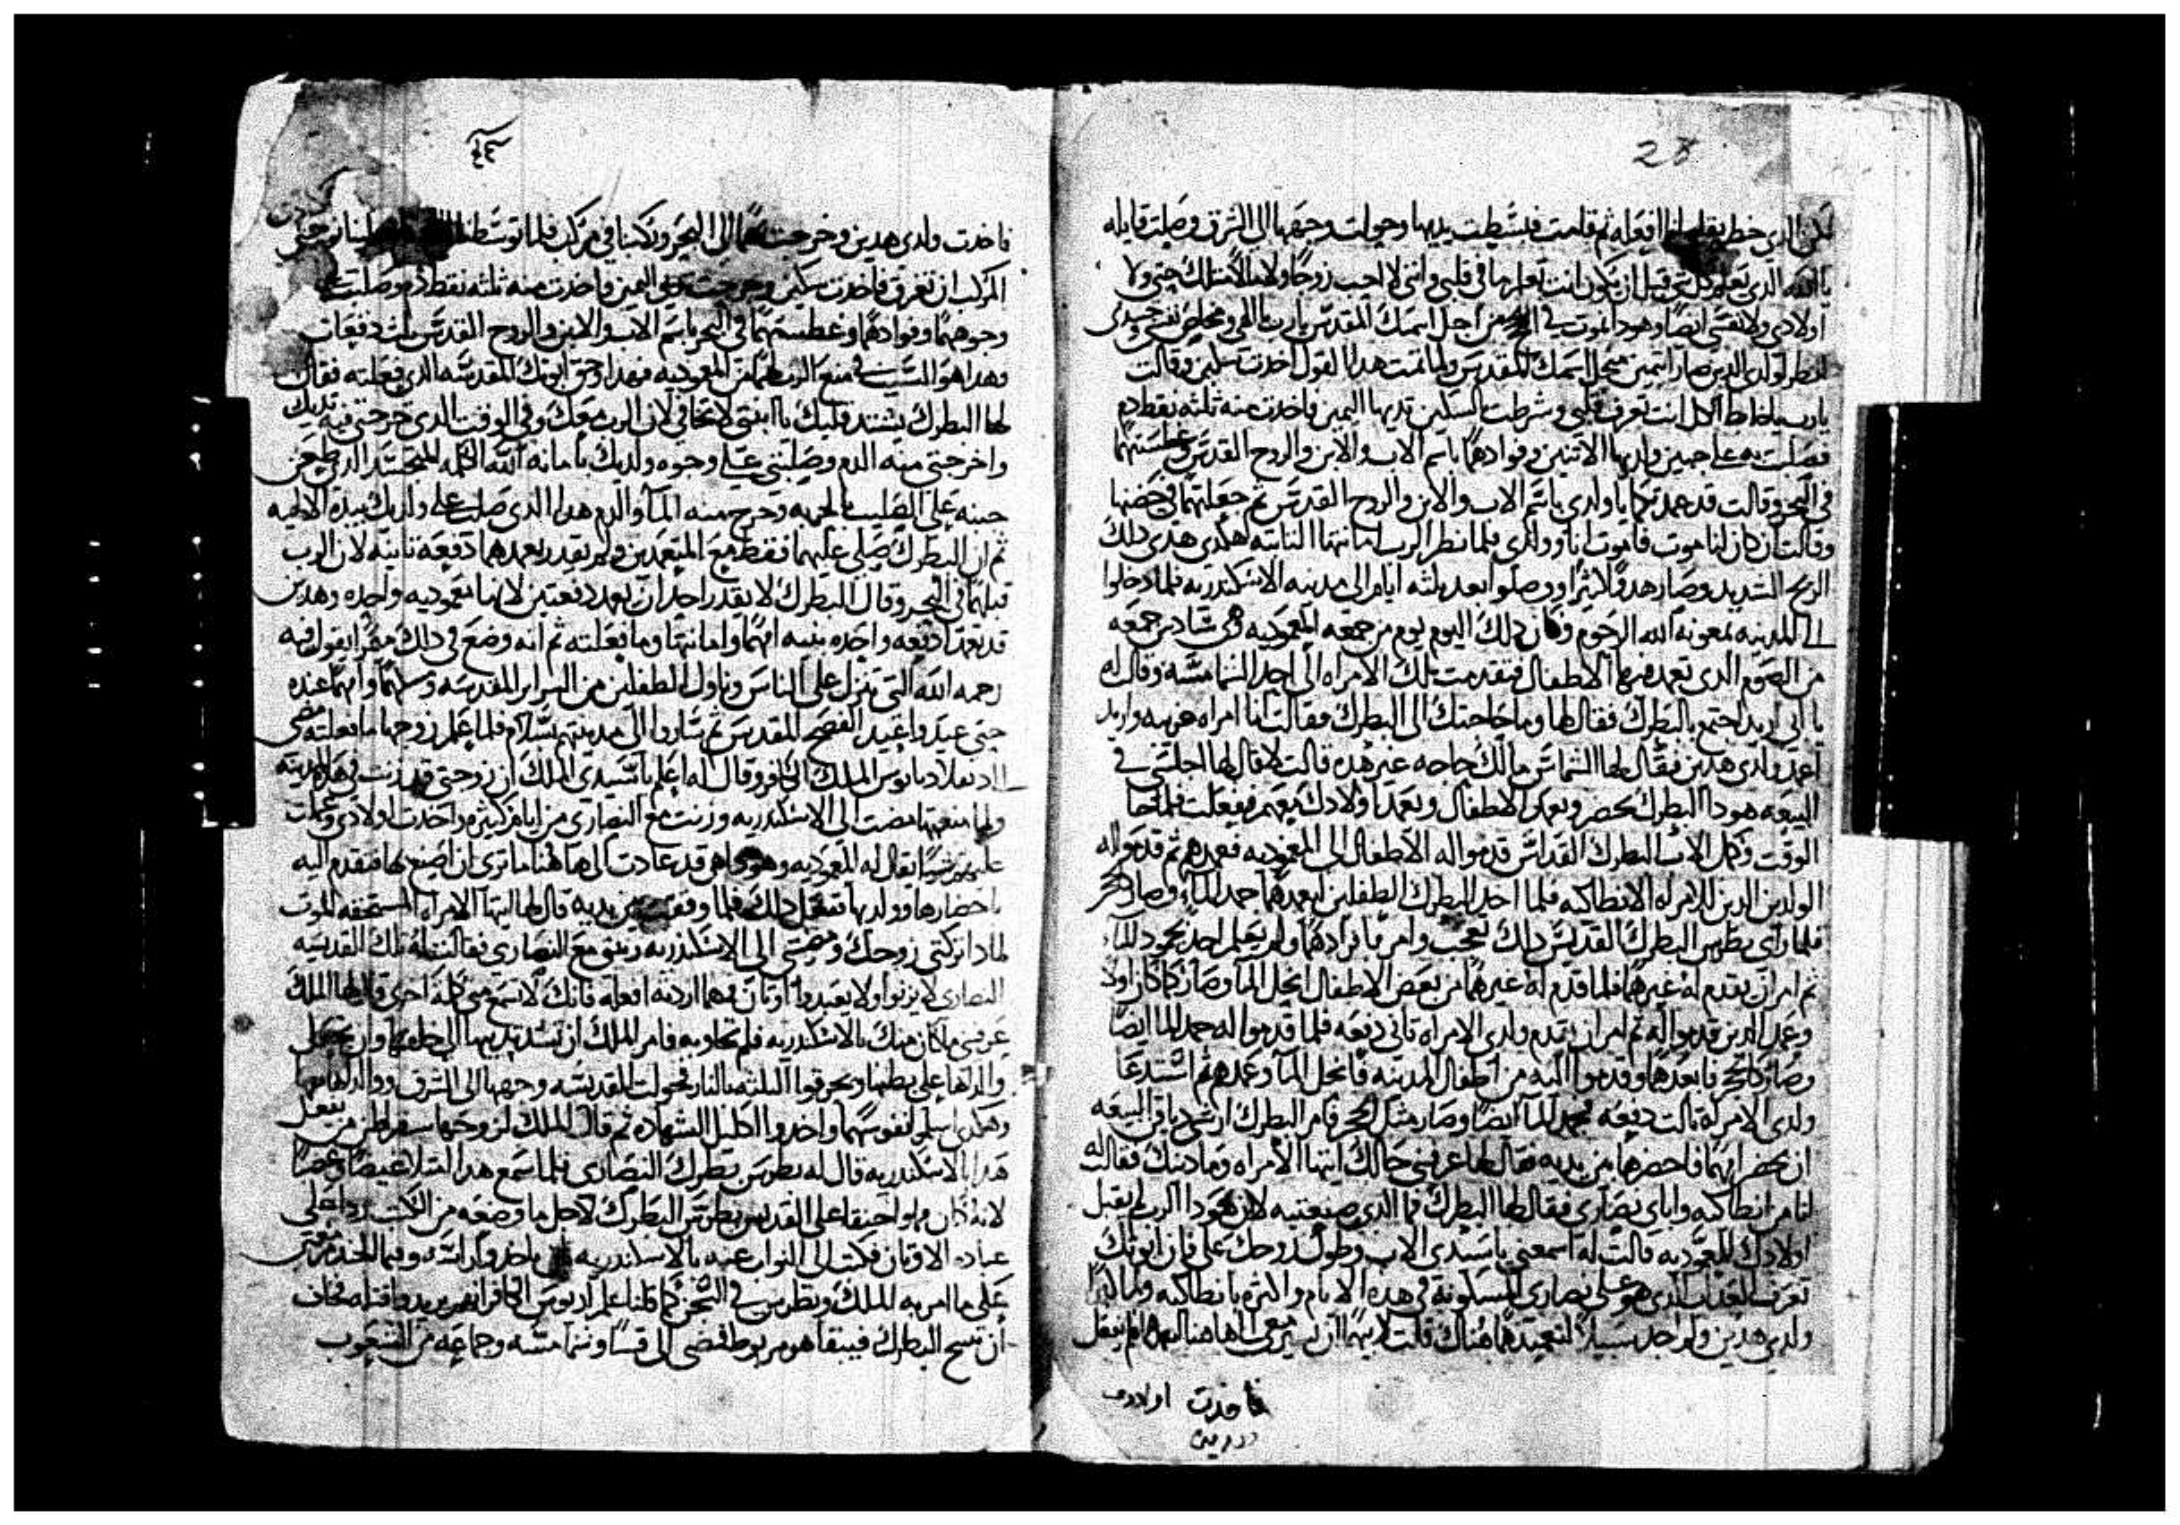 28
لكن الذي خطر بقلبها افعله ثم قامت فبسطت يديها وحولت وجهها الى الشرق وصلت قايله
يا الله الذي تعلم كل شي قبل ان يكون انت تعلم ما في قلبي وانني لا احب زوجا ولا مالا مثلك حتى ولا
اولادي ولا نفسي ايضا وهودا نموت في البحر من اجل اسمك المقدس يارب يا الهي ومخلص نفسي وجسدي
انظر لولدي الدين صارا يتيمين من اجل اسمك المقدس ولما تممت هدا القول اخدت سكين وقالت
يارب ياضابط الكل انت تعرف قلبي وشرطت بالسكين تديها اليمين فاخدت منه ثلثه نقط دم
فصلبت به على جبين ولديها الاثنين وفوادهما باسم الاب والابن والروح القدس وغطستهما
في البحر وقالت قد عمدتكما ياولدي باسم الاب والابن والروح القدس ثم جعلتهما في حضنها
وقالت ان كان لنا موت فاموت انا وولدي فلما نظر الرب امانتها التابته هكدى هدى دلك
الريح الشديد وصار هدوا كثيرا ووصلوا بعد ثلثه ايام الى مدينه الاسكندريه فلما دخلوا
الى المدينه بمعونه الله الرحوم وكان دلك اليوم يوم من جمعه المعموديه وهى سادس جمعه
من الصوم الدى تعمد فيها الاطفال فتقدمت تلك الامراه الى احد الشمامسه وقال له
يا ابى اريد اجتمع بالبطرك فقال لها وما حاجتك الى البطرك فقالت انا امراه غريبه واريد
اعمد ولدى هدين فقال لها الشماس مالك حاجه غير هده قالت لا فقال لها اجلسى في
البيعه هودا البطرك يحضر ويعمد الاطفال ويعمد اولادك معهم ففعلت فلما جا
الوقت وكمل الاب البطرك القداس قدموا اله الاطفال الى المعموديه فعمدهم ثم قدموا له
الولدين الدين للامراه الانطاكيه فلما اخد البطرك الطفلين ليعمدهما جمد الماء وصار كالحجر
فلما راى بطرس البطرك القديس دلك تعجب وامر بافرادهما ولم يعلم احد بجمود الماء
ثم امر ان يقدم له غيرهما فلما قدم له غيرهما من بعض الاطفال انحل الما وصار كما كان اولا
وعمد الدين قدموا له ثم امر ان يقدم ولدى الامراه تانى دفعه فلما قدموا له جمد الما ايضا
وصار كالحجر فابعدهما وقدموا اليه من اطفال المدينه فانحل الما وعمدهم ثم استدعا
ولدى الامراة تالت دفعه فجمد الما ايضا وصار مثل الحجر فامر البطرك ارشى دياقن البيعه
ان يحضر امهما فاحضرها بين يديه فقال لها عرفينى حالك ايتها الامراه وما دينك فقالت له
انا من انطاكيه واباي نصارى فقال لها البطرك فما الدى صنعتيه لان هودا الرب لم يقبل
اولادك للمعموديه قالت له اسمعنى ياسيدى الاب وطول روحك على فان ابوتك
تعرف العداب الدى هو على نصارى المسكونة في هده الايام والاكثره بانطاكيه ولما كبرا
ولدى هدين ولم اجد سبيلا لتعميدهما هناك قلت لابيهما ان يسير معى الى هاهنا لنعمدهما فلم يفعل
فاخدت اولادى
فاخدت ولدى هدين وخرجت بهما الى البحر وركبنا في مركب فلما توسطنا
المركب ان تغرق فاخدت سكين وجرحت تديى اليمين فاخدت منه ثلثه نقط دم وصلبت على
وجوههما وفوادهما وغطستهما في البحر باسم الاب والابن والروح القدس ثلت دفعات
وهدا هو السبب في منع الرب لهما من المعموديه فهدا وحق ابوتك المقدسه الدى فعلته فقال
لها البطرك يشتد قلبك يا ابنتى لا تخافى لان الرب معك وفى الوقت الدى جرحتى فيه تديك
واخرجتى منه الدم وصلبتى على وجوه ولديك بامانه الله الكلمه المتجسد الدى طعن
جنبه على الصليب بالحربه وخرج منه الما والدم هدا الدى صلب على ولديك بيده الالهيه
ثم ان البطرك صلى عليهما فقط مع المتعمدين ولم يقدر يعمدهما دفعه تانيه لان الرب
قبلهما في البحر وقال البطرك لا يقدر احد ان يعمد دفعتين لانها معموديه واحده وهدين
قد تعمدا دفعه واحده بنيه امهما وامانتها وما فعلته ثم انه وضع في دلك مقرا يقول فيه
رحمه الله التى تنزل على الناس وناول الطفلين من السراير المقدسه وسلهما وامهما عنده
حتى عيدوا عيد الفصح المقدس ثم ساروا الى مدينتهم بسلام فلما علم زوجها ما فعلته مضى
الى دقلاديانوس الملك الكافر وقال له اعلم ياسيدى الملك ان زوجتى قد زنت في هده المدينه
ولما منعتها مضت الى الاسكندريه وزنت مع النصارى من ايام كثيره واخدت اولادى وعملت
عليهم شيا يقال له المعموديه وهودا هى قد عادت الى هاهنا ما ترى ان اصنع بها فتقدم اليه
باحضارها وولديها ففعل دلك فلما وقفت بين يديه قال لها ايتها الامراه المستحقه الموت
لمادا تركتى زوجك ومضيتى الى الاسكندريه زنيتى مع النصارى فقالت له تلك القديسه
النصارى لا يزنوا ولا يعبدوا اوتان فمهما اردته افعله فانك لا تسمع منى كلمة اخرى قال لها الملك
عرفينى ما كان منك بالاسكندريه فلم تجاوبه فامر الملك ان تشد يديها الى خلفها وان يجعل
والداها على بطنها ويحرقوا الثلثه بالنار فحولت القديسه وجهها الى الشرق وولداها معها
وهكدى اسلموا نفوسهما واخدوا اكليل الشهاده ثم قال الملك لزوجها سقراطس من يفعل
هدا بالاسكندريه قال له بطرس بطرك النصارى فلما سمع هدا امتلا غيضا وغضبا
لانه كان مملوا حنقا على القديس بطرس البطرك لاجل ما وضعه من الكتب ردا على
عباده الاوتان فكتب الى النواب عنه بالاسكندريه ان ياخدوا راسه وفيما الجند مزمعين
على ما امر به الملك وبطرس في السجن كما قلنا علم اريوس الكافر انهم يريدوا قتله فخاف
ان تنيح البطرك فيبقا هو مربوط فمضى الى قسا وشمامسه وجماعه من الشعوب